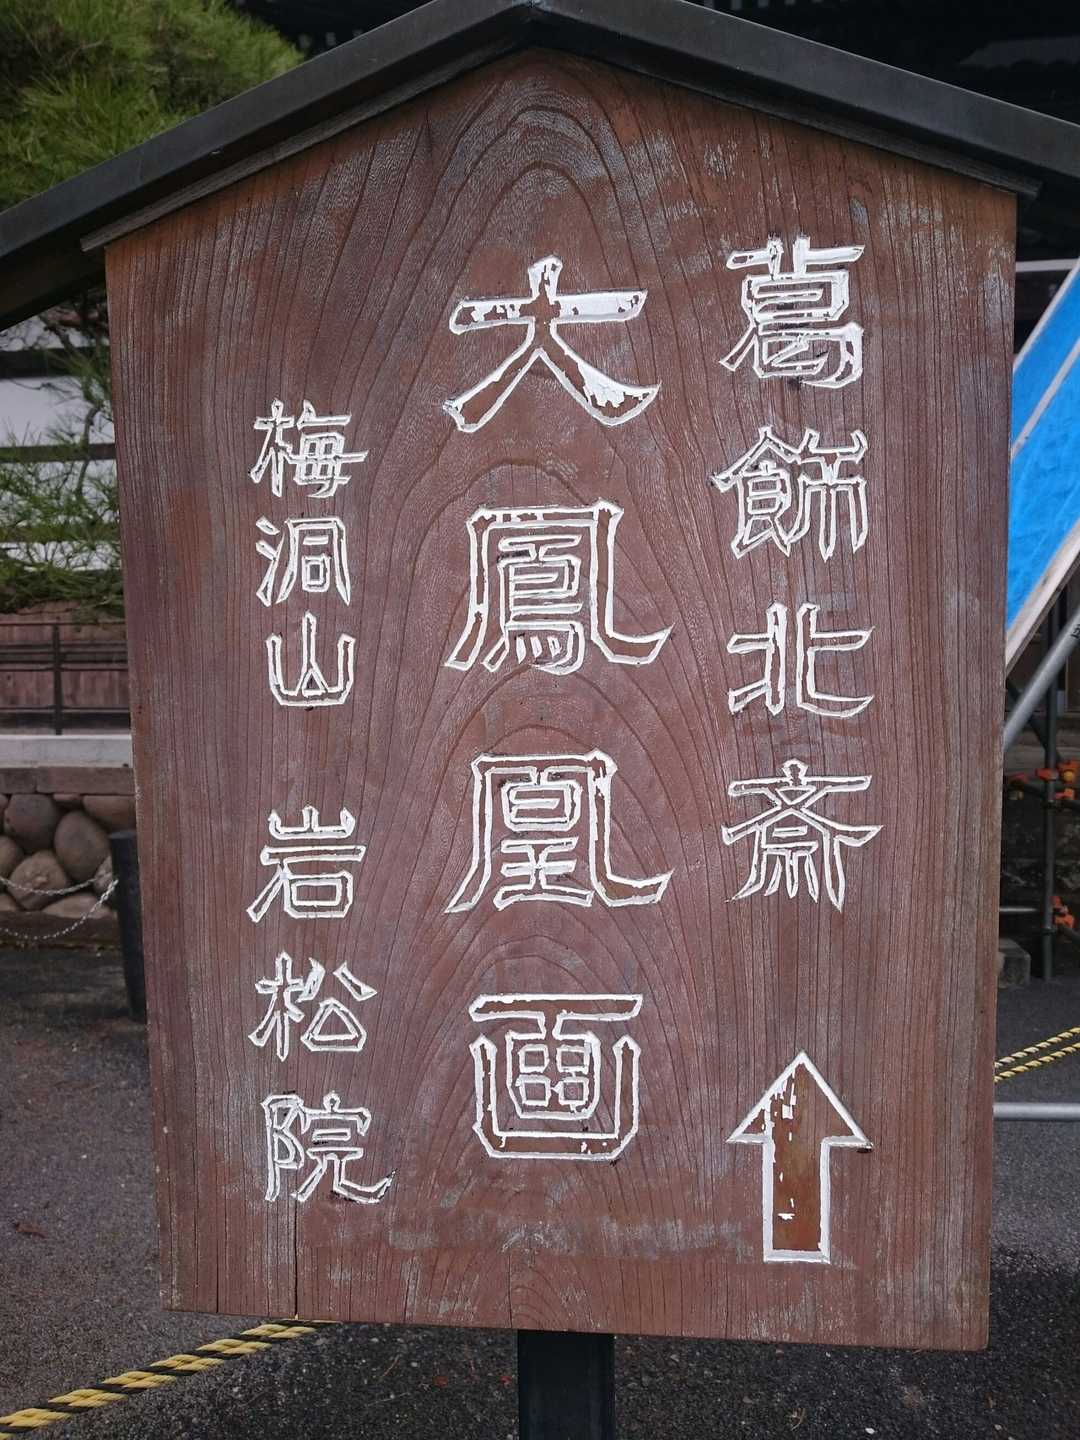 葛飾北斎 ↑
大鳳凰画
梅洞山 岩松院